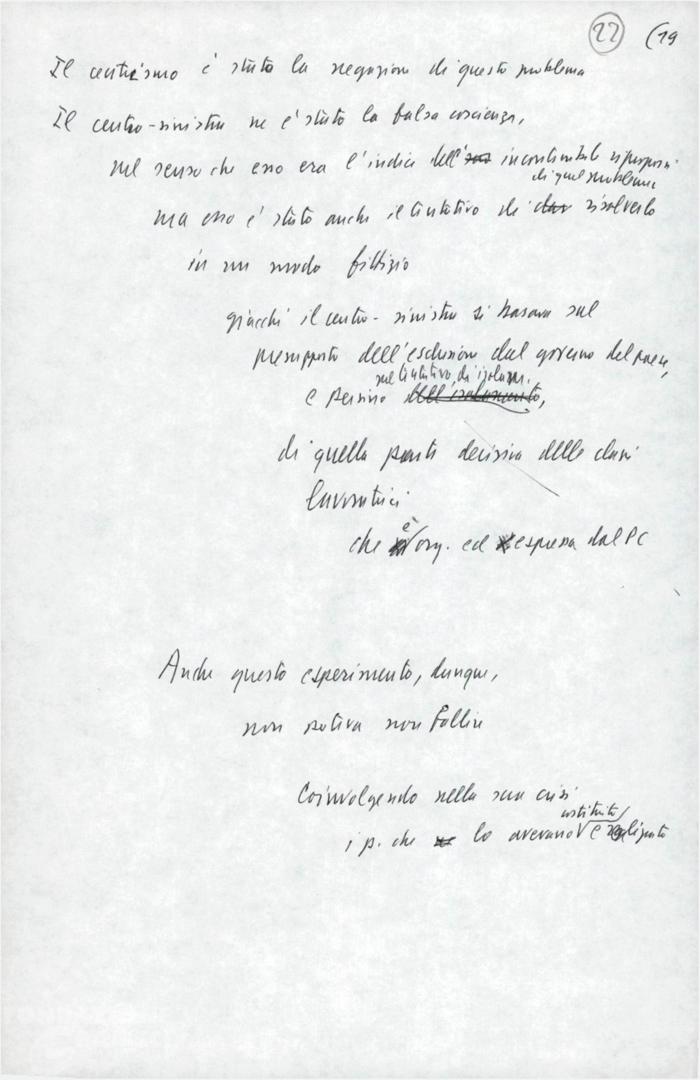 22 (19
Il centrismo è stato la negazione di questo problema
Il centro-sinistra ne è stato la falsa coscienza,
nel senso che esso era l'indice dell' incontenibile riproporsi
di quel problema
ma esso è stato anche il tentativo di risolverlo
in un modo fittizio
giacché il centro-sinistra si basava sul
presupposto dell'esclusione dal governo del paese,
sul tentativo di isolam.
e persino dell'isolamento,
di quella parte decisiva delle classi
lavoratrici
che è org. ed espressa dal PC
Anche questo esperimento, dunque,
non poteva non fallire
Coinvolgendo nella sua crisi
costruito
i p. che lo avevano e